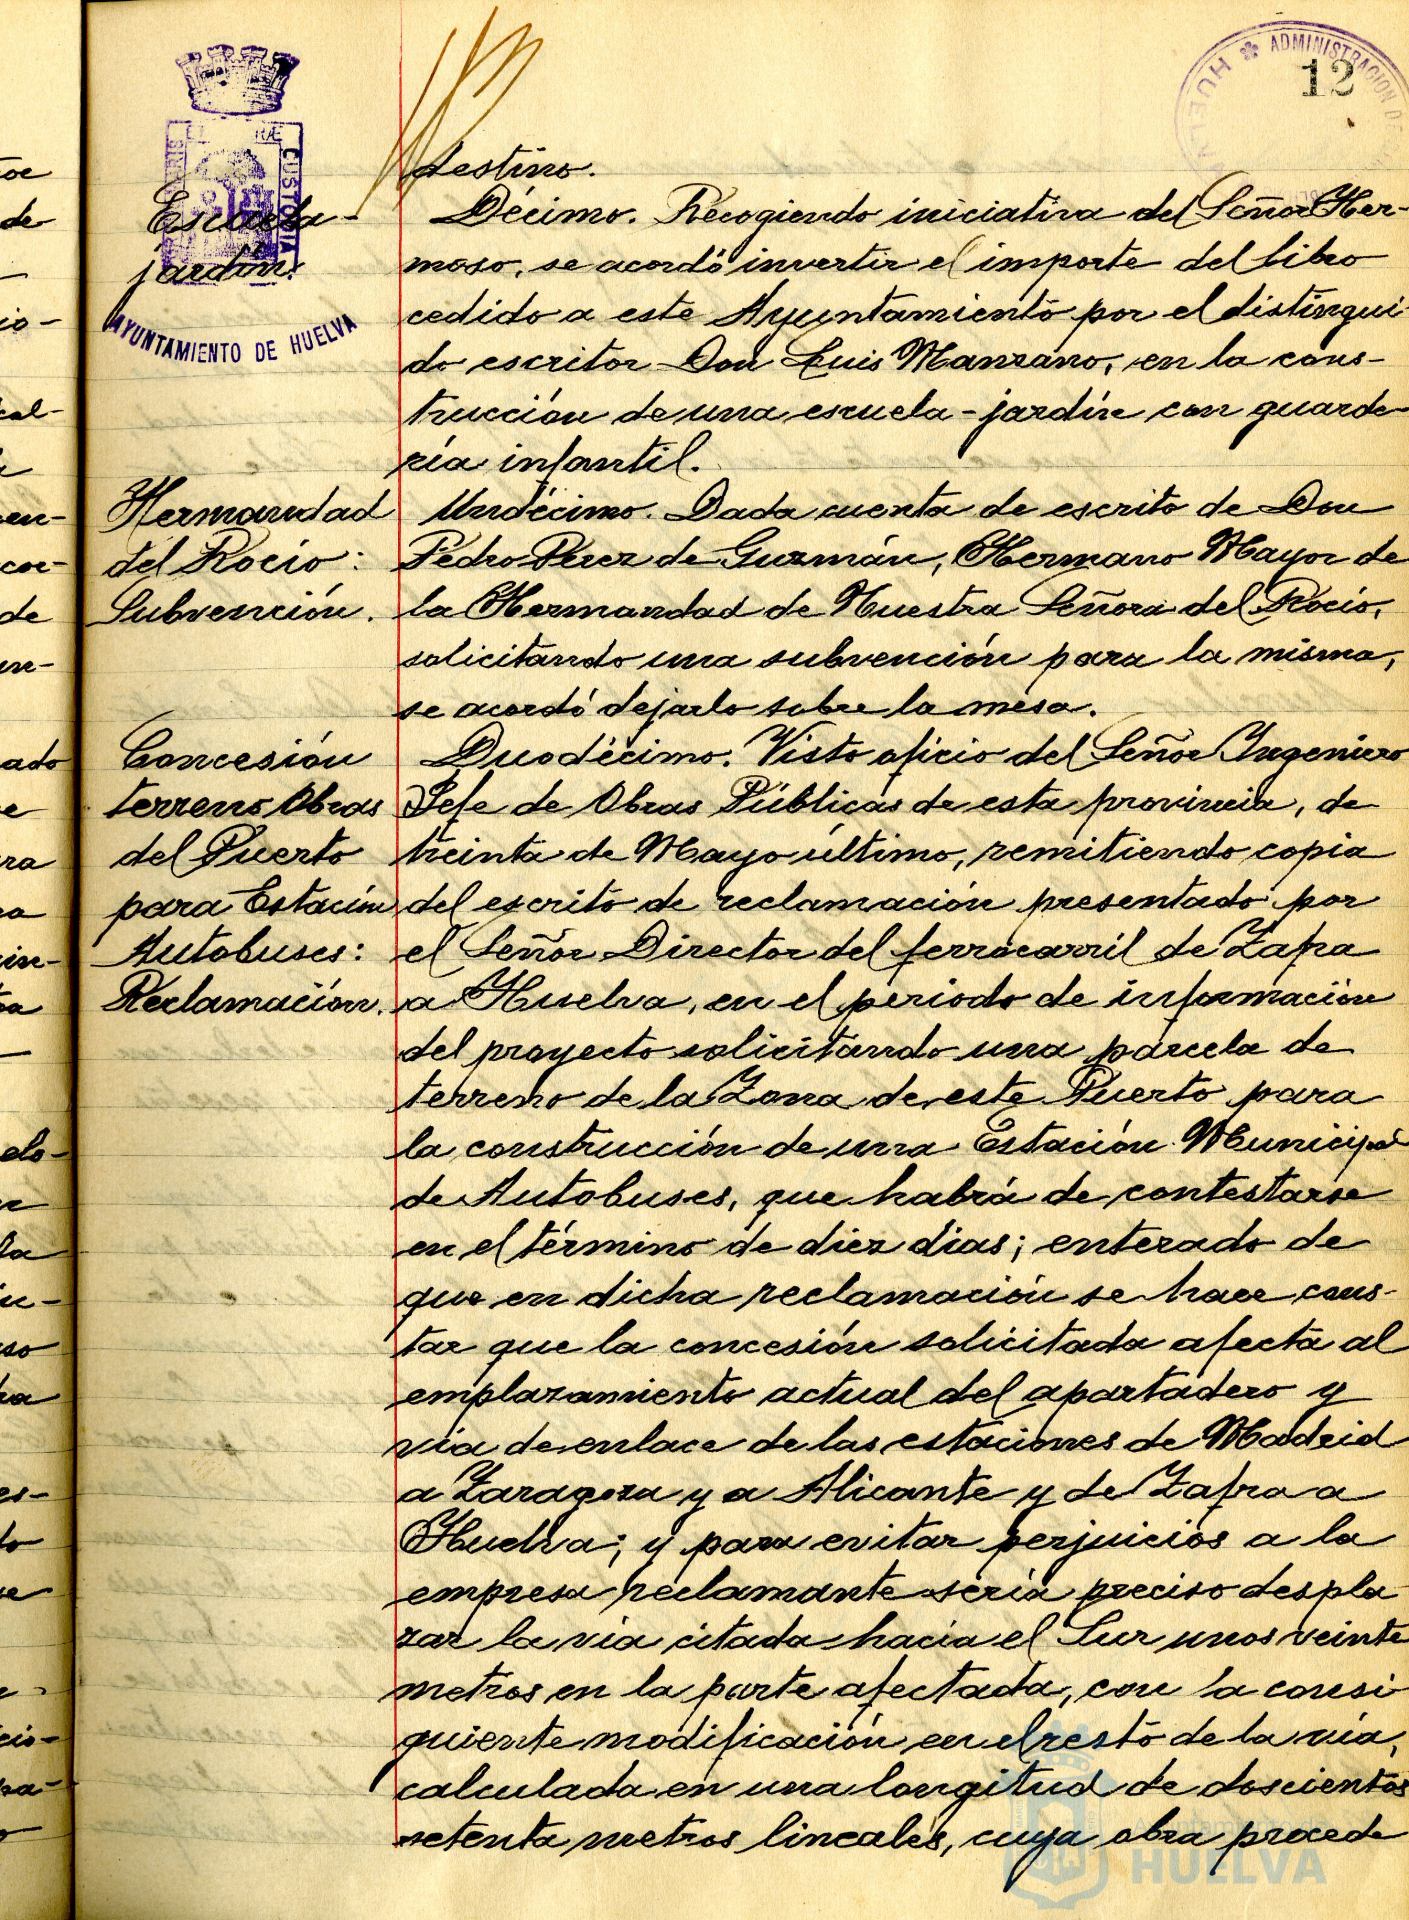 12
ADMINISTRACION DE
HUELVA
CUSTODIA
AYUNTAMIENTO DE HUELVA
destino.
Escuela-
jardín:
Décimo. Recogiendo iniciativa del Señor Her-
moso, se acordó invertir el importe del libro
cedido a este Ayuntamiento por el distingui-
do escritor Don Luis Manzano, en la cons-
trucción de una escuela-jardín con guarde-
ría infantil.
Hermandad
del Rocío:
Subvención.
Undécimo. Dada cuenta de escrito de Don
Pedro Pérez de Guzmán, Hermano Mayor de
la Hermandad de Nuestra Señora del Rocío,
solicitando una subvención para la misma,
se acordó dejarlo sobre la mesa.
Concesión
terreno Obras
del Puerto
para Estación
Autobuses:
Reclamación.
Duodécimo. Visto oficio del Señor Ingeniero
Jefe de Obras Públicas de esta provincia, de
treinta de Mayo último, remitiendo copia
del escrito de reclamación presentado por
el Señor Director del ferrocarril de Zafra
a Huelva, en el periodo de información
del proyecto solicitando una parcela de
terreno de la Zona de este Puerto para
la construcción de una Estación Municipal
de Autobuses, que habrá de contestarse
en el término de diez días; enterado de
que en dicha reclamación se hace cons-
tar que la concesión solicitada afecta al
emplazamiento actual del apartadero y
vía de enlace de las estaciones de Madrid
a Zaragoza y a Alicante y de Zafra a
Huelva; y para evitar perjuicios a la
empresa reclamante sería preciso despla
zar la vía citada hacia el Sur unos veinte
metros en la parte afectada, con la consi
guiente modificación en el resto de la vía,
calculada en una longitud de doscientos
setenta metros lineales, cuya obra procede
HUELVA